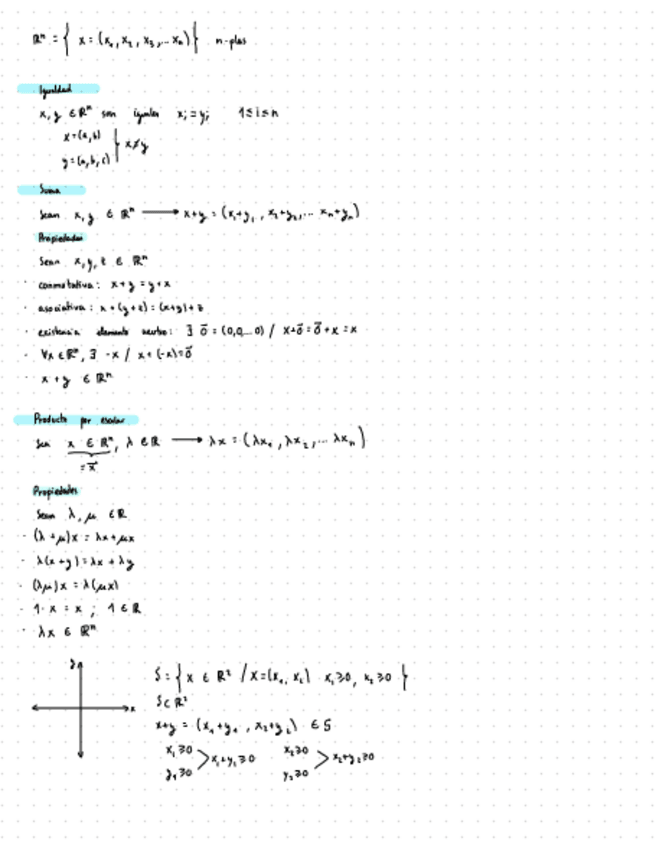 ℝⁿ = { x = (x₁, x₂, x₃, ... xₙ) } n-plas
Igualdad
x, y ∈ ℝⁿ son iguales xᵢ = yᵢ 1 ≤ i ≤ n
x = (a, b)
y = (a, b, c) } x ≠ y
Suma
Sean x, y ∈ ℝⁿ ⟶ x+y = (x₁+y₁, x₂+y₂, ... xₙ+yₙ)
Propiedades
Sean x, y, z ∈ ℝⁿ
· conmutativa: x+y = y+x
· asociativa: x+(y+z) = (x+y)+z
· existencia elemento neutro: ∃ 0⃗ = (0,0,...0) / x+0⃗ = 0⃗+x = x
· ∀x ∈ ℝⁿ, ∃ -x / x+(-x) = 0⃗
· x+y ∈ ℝⁿ
Producto por escalar
Sea x ∈ ℝⁿ, λ ∈ ℝ ⟶ λx = (λx₁, λx₂, ... λxₙ)
= x⃗
Propiedades
Sean λ, μ ∈ ℝ
· (λ+μ)x = λx+μx
· λ(x+y) = λx+λy
· (λμ)x = λ(μx)
· 1·x = x ; 1 ∈ ℝ
· λx ∈ ℝⁿ
y
x
S = { x ∈ ℝ² / x = (x₁, x₂) x₁≥0, x₂≥0 }
S ⊂ ℝ²
x+y = (x₁+y₁, x₂+y₂) ∈ S
x₁≥0 x₂≥0
> x₁+y₁≥0 > x₂+y₂≥0
y₁≥0 y₂≥0